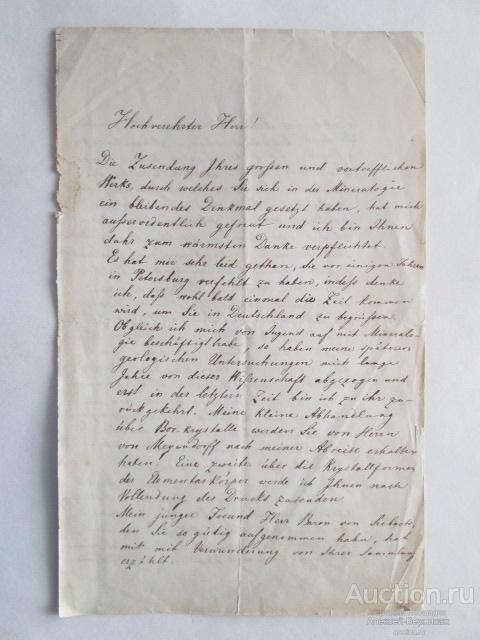 Hochverehrter Herr!
Die Zusendung Ihres großen und vortrefflichen
Werks, durch welches Sie sich in der Mineralogie
ein bleibendes Denkmal gesetzt haben, hat mich
außerordentlich gefreut und ich bin Ihnen
dafür zum wärmsten Danke verpflichtet.
Es hat mir sehr leid gethan, Sie vor einigen Jahren
in Petersburg verfehlt zu haben, indeß denke
ich, daß wohl bald einmal die Zeit kommen
wird, um Sie in Deutschland zu begrüßen.
Obgleich ich mich von Jugend auf mit Mineralo-
gie beschäftigt habe, so haben meine späteren
geologischen Untersuchungen mich lange
Jahre von dieser Wißenschaft abgezogen und
erst in der letzten Zeit bin ich zu ihr zu-
rückgekehrt. Meine kleine Abhandlung
über Bor. krystalle werden Sie von Herrn
von Meyendorff nach meiner Abreise erhalten
haben. Eine zweite über die Krystallformen
der Elementarkörper werde ich Ihnen nach
Vollendung des Drucks zusenden.
Mein junger Freund Herr Baron von
den Sie so gütig aufgenommen haben, hat
mir mit Verwunderung von Ihrer Sammlung
erzählt.
Auction.ru